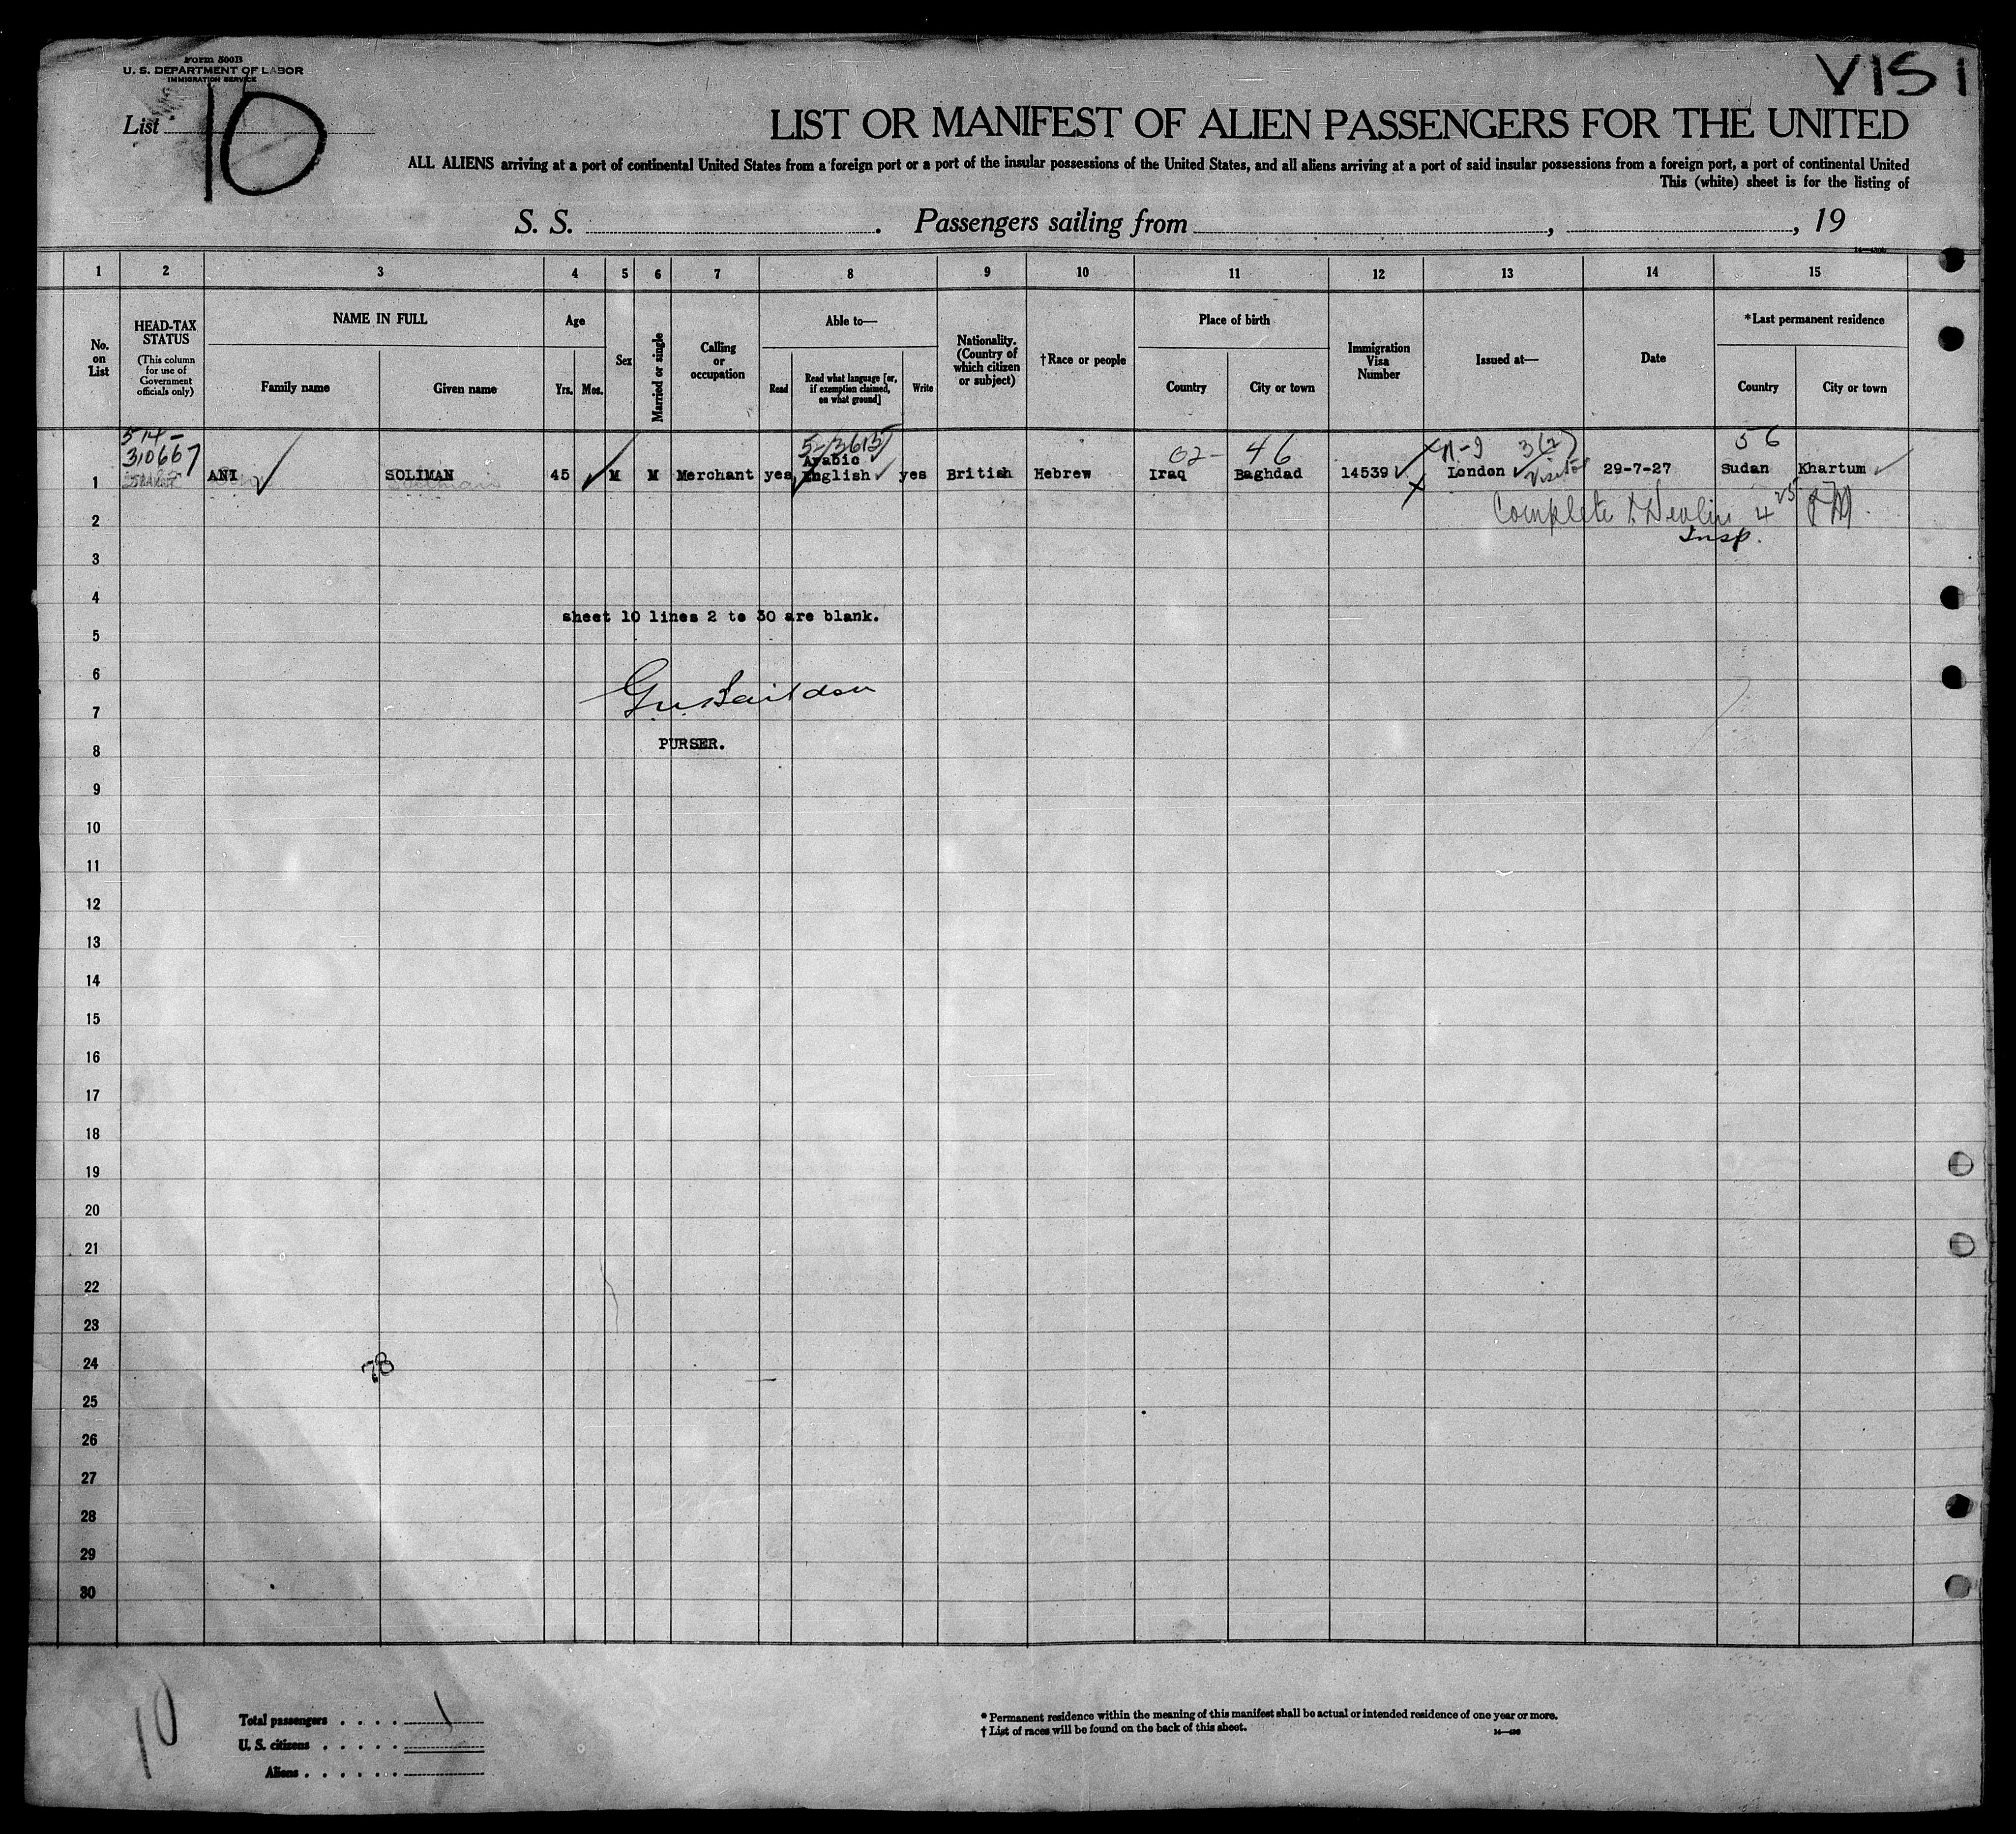 Form 500B
U. S. DEPARTMENT OF LABOR
IMMIGRATION SERVICE
VISI
List 10
LIST OR MANIFEST OF ALIEN PASSENGERS FOR THE UNITED
ALL ALIENS arriving at a port of continental United States from a foreign port or a port of the insular possessions of the United States, and all aliens arriving at a port of said insular possessions from a foreign port, a port of continental United
This (white) sheet is for the listing of
S. S. . Passengers sailing from , , 19
1 2 3 4 5 6 7 8 9 10 11 12 13 14 15
No. on List
HEAD-TAX STATUS
(This column for use of Government officials only)
NAME IN FULL
Family name
Given name
Age
Yrs. Mos.
Sex
Married or single
Calling or occupation
Able to—
Read
Read what language [or, if exemption claimed, on what ground]
Write
Nationality. (Country of which citizen or subject)
†Race or people
Place of birth
Country
City or town
Immigration Visa Number
Issued at—
Date
*Last permanent residence
Country
City or town
514-
310667
5-/3615
02-
46
56
Arabic
1 ANI SOLIMAN 45 M M Merchant yes English yes British Hebrew Iraq Baghdad 14539 London 29-7-27 Sudan Khartum
Visitor
Complete
Insp.
2
3
4
sheet 10 lines 2 to 30 are blank.
5
6
7
PURSER.
8
9
10
11
12
13
14
15
16
17
18
19
20
21
22
23
24
78
25
26
27
28
29
30
10
Total passengers . . . . 1
U. S. citizens . . . . .
Aliens . . . . . .
* Permanent residence within the meaning of this manifest shall be actual or intended residence of one year or more.
† List of races will be found on the back of this sheet.